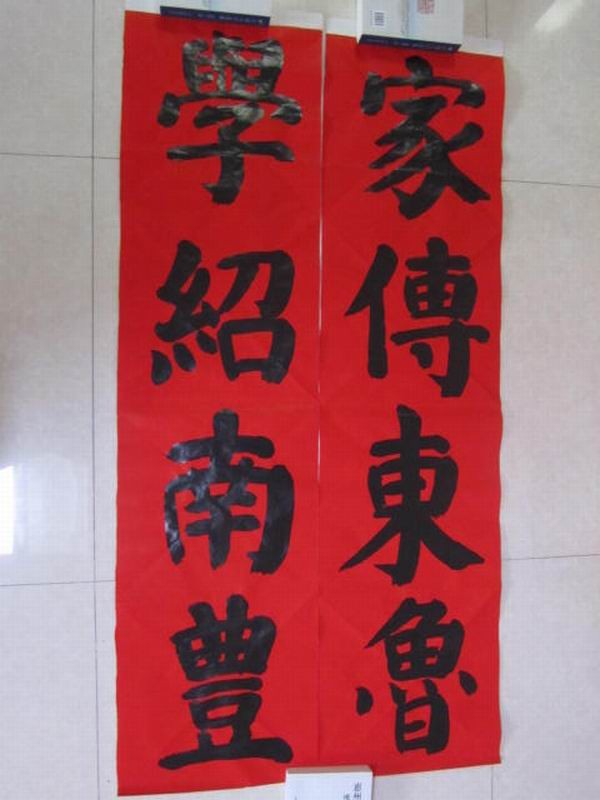 家傳東魯
學紹南豊